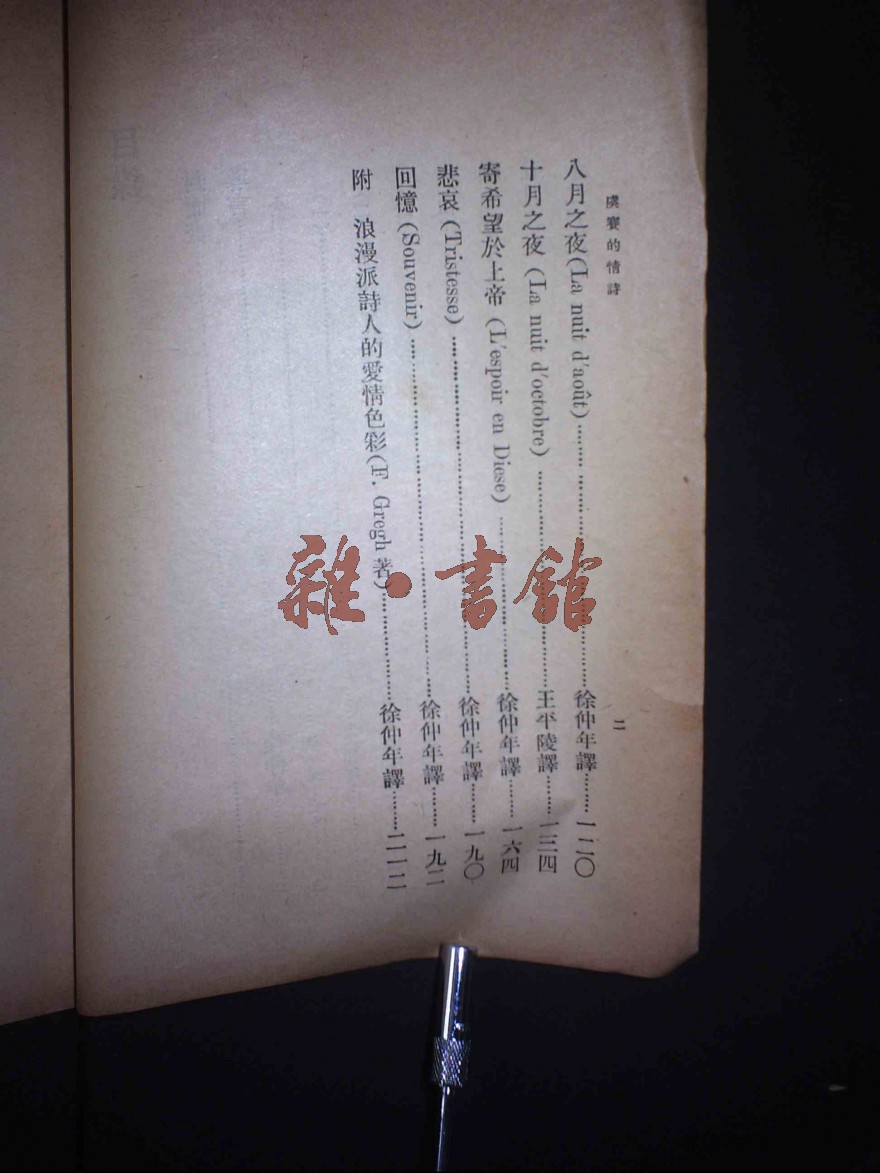 虞賽的情詩 二
八月之夜(La nuit d'août)………………徐仲年譯………一二〇
十月之夜 (La nuit d'octobre)………………王平陵譯………一三四
寄希望於上帝 (L'espoir en Diese)………………徐仲年譯………一六四
悲哀 (Tristesse)………………徐仲年譯………一九〇
回憶 (Souvenir)………………徐仲年譯………一九二
附 浪漫派詩人的愛情色彩(F. Gregh 著)………………徐仲年譯………二一二
雜·書館